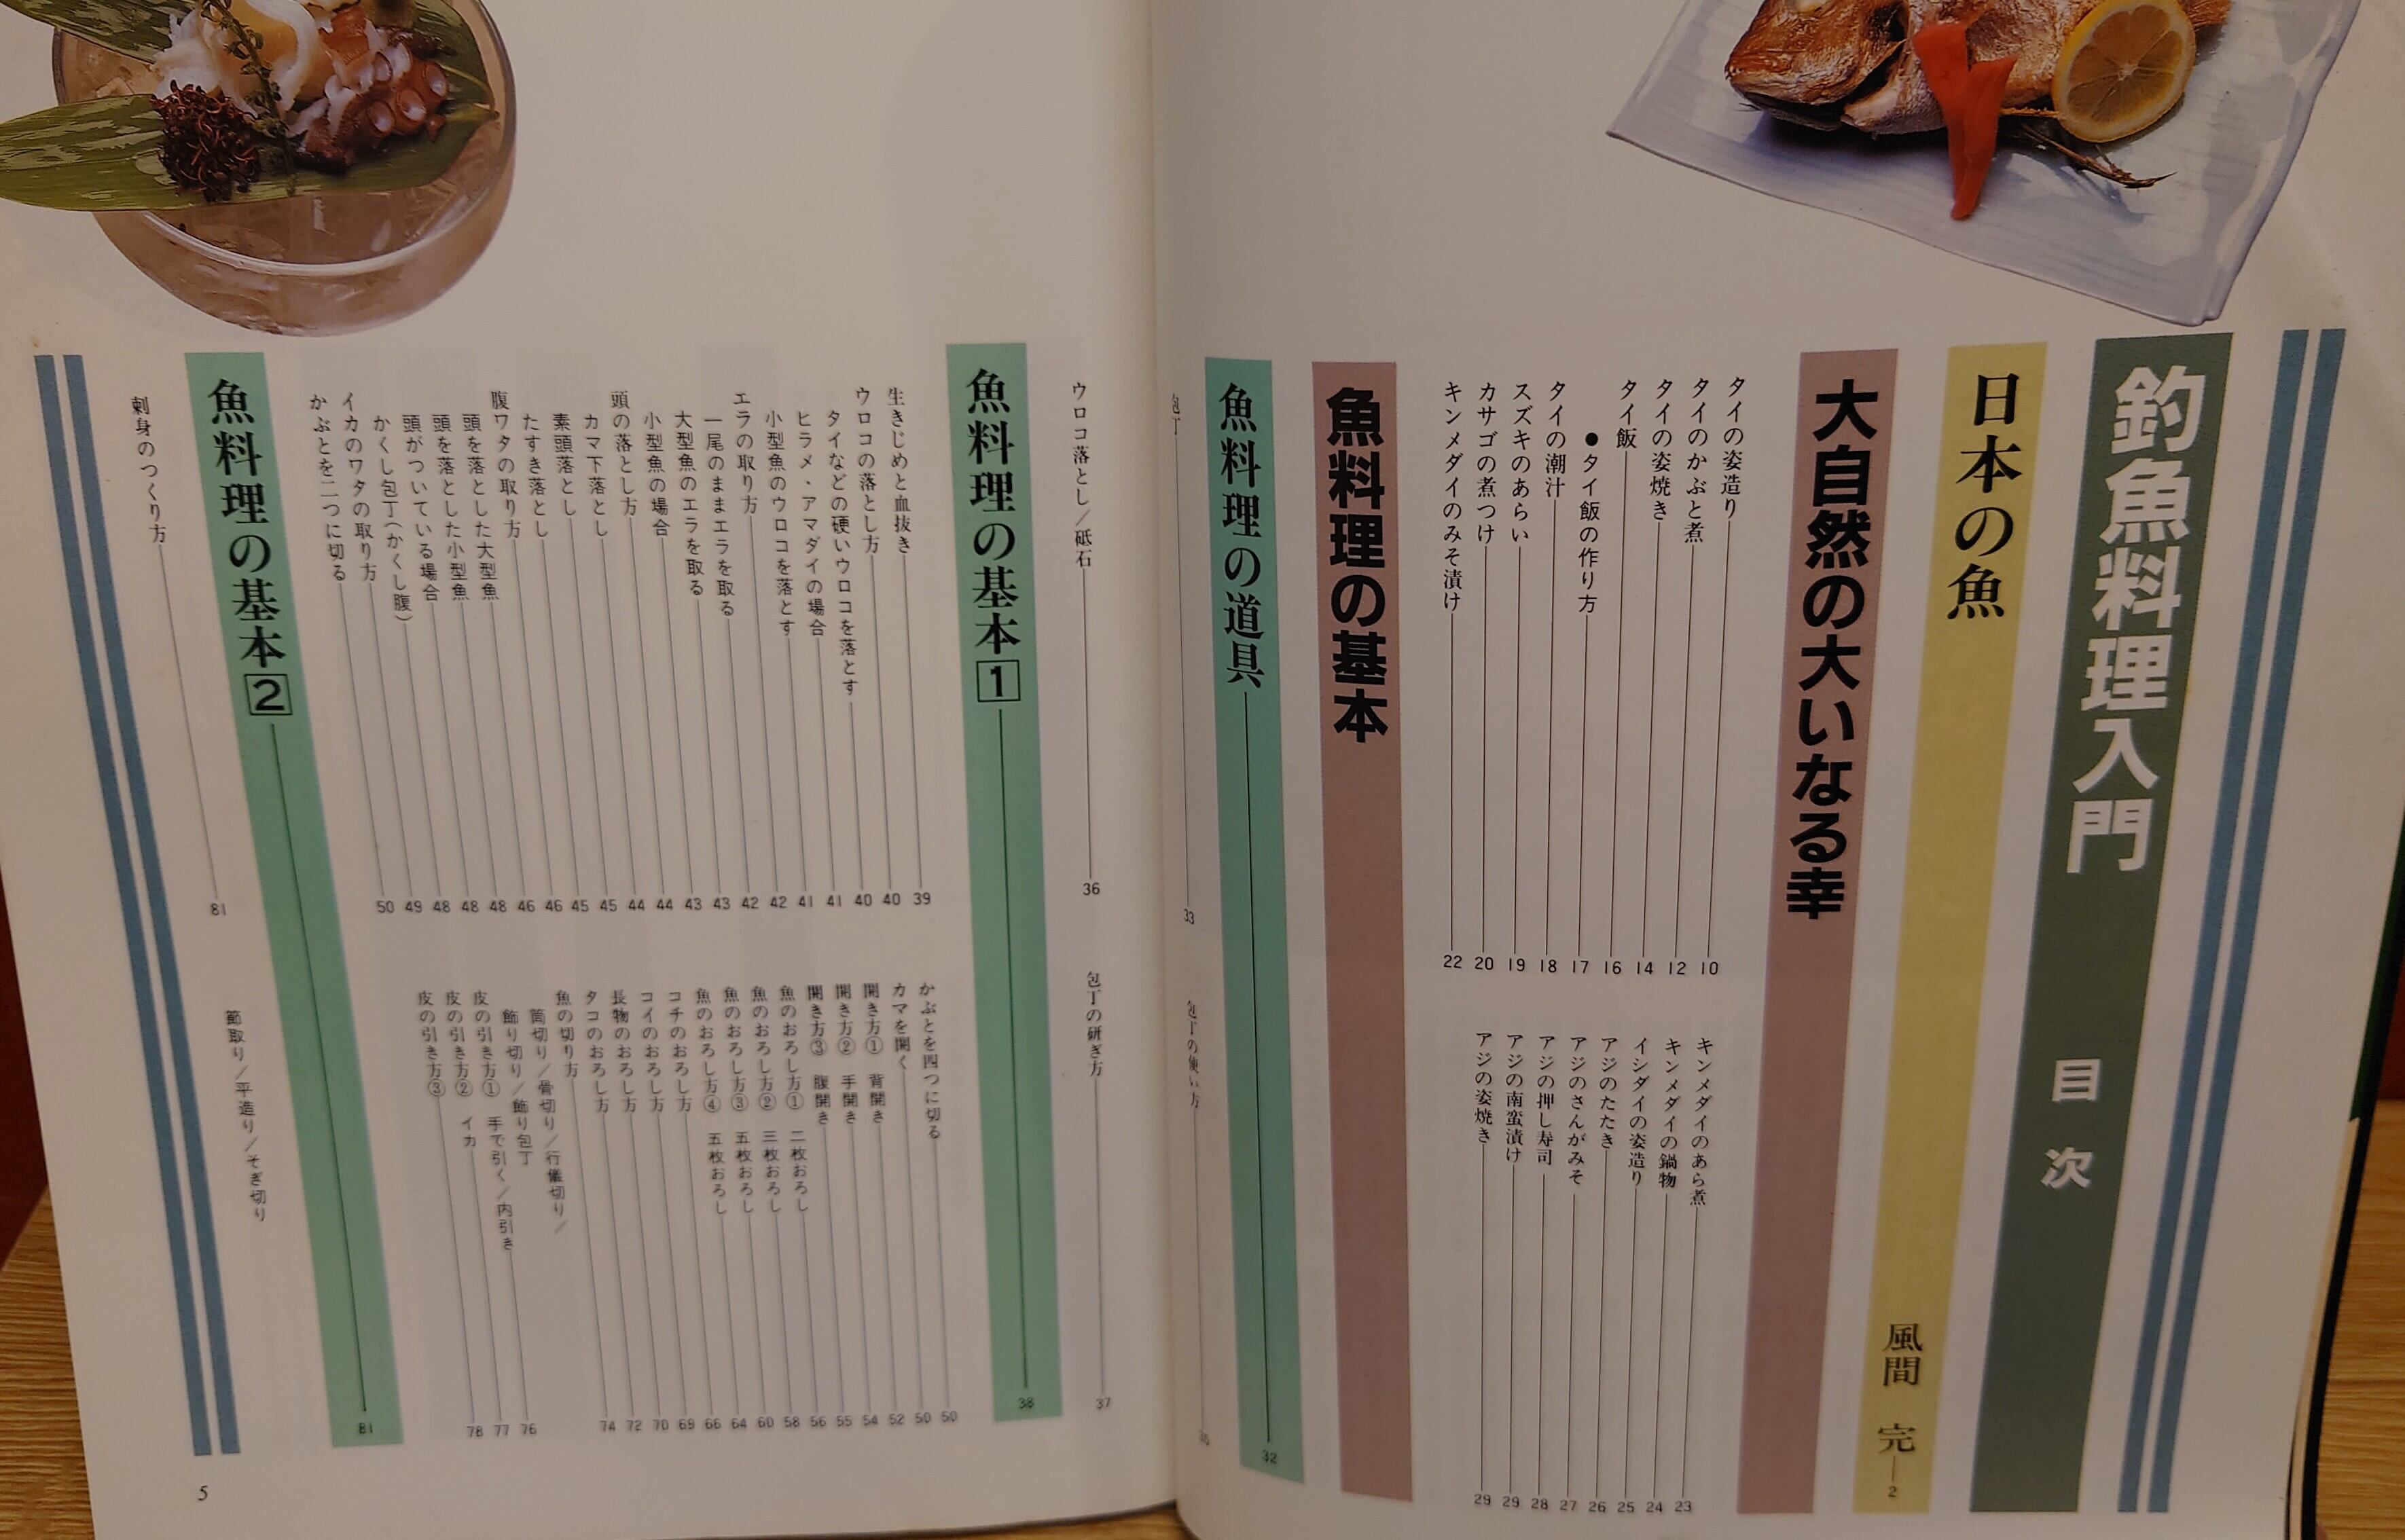 釣魚料理入門 目次
日本の魚 風間 完 2
大自然の大いなる幸
タイの姿造り 10
タイのかぶと煮 12
タイの姿焼き 14
タイ飯 16
●タイ飯の作り方 17
タイの潮汁 18
スズキのあらい 19
カサゴの煮つけ 20
キンメダイのみそ漬け 22
キンメダイのあら煮 23
キンメダイの鍋物 24
イシダイの姿造り 25
アジのたたき 26
アジのさんがみそ 27
アジの押し寿司 28
アジの南蛮漬け 29
アジの姿焼き 29
魚料理の基本
魚料理の道具 32
包丁 33
包丁の使い方
ウロコ落とし/砥石 36
包丁の研ぎ方 37
魚料理の基本1 38
生きじめと血抜き 39
ウロコの落とし方 40
タイなどの硬いウロコを落とす 40
ヒラメ・アマダイの場合 41
小型魚のウロコを落とす 41
エラの取り方 42
一尾のままエラを取る 42
大型魚のエラを取る 43
小型魚の場合 43
頭の落とし方 44
カマ下落とし 44
素頭落とし 45
たすき落とし 45
腹ワタの取り方 46
頭を落とした大型魚 46
頭を落とした小型魚 48
頭がついている場合 48
かくし包丁(かくし腹) 48
イカのワタの取り方 49
かぶとを二つに切る 50
かぶとを四つに切る 50
カマを開く 50
開き方① 背開き 52
開き方② 手開き 54
開き方③ 腹開き 55
魚のおろし方① 二枚おろし 56
魚のおろし方② 三枚おろし 58
魚のおろし方③ 五枚おろし 60
魚のおろし方④ 五枚おろし 64
コチのおろし方 66
コイのおろし方 69
長物のおろし方 70
タコのおろし方 72
魚の切り方 74
筒切り/骨切り/行儀切り/
飾り切り/飾り包丁
皮の引き方① 手で引く/内引き 76
皮の引き方② イカ 77
皮の引き方③ 78
魚料理の基本2 81
刺身のつくり方 81
節取り/平造り/そぎ切り
5